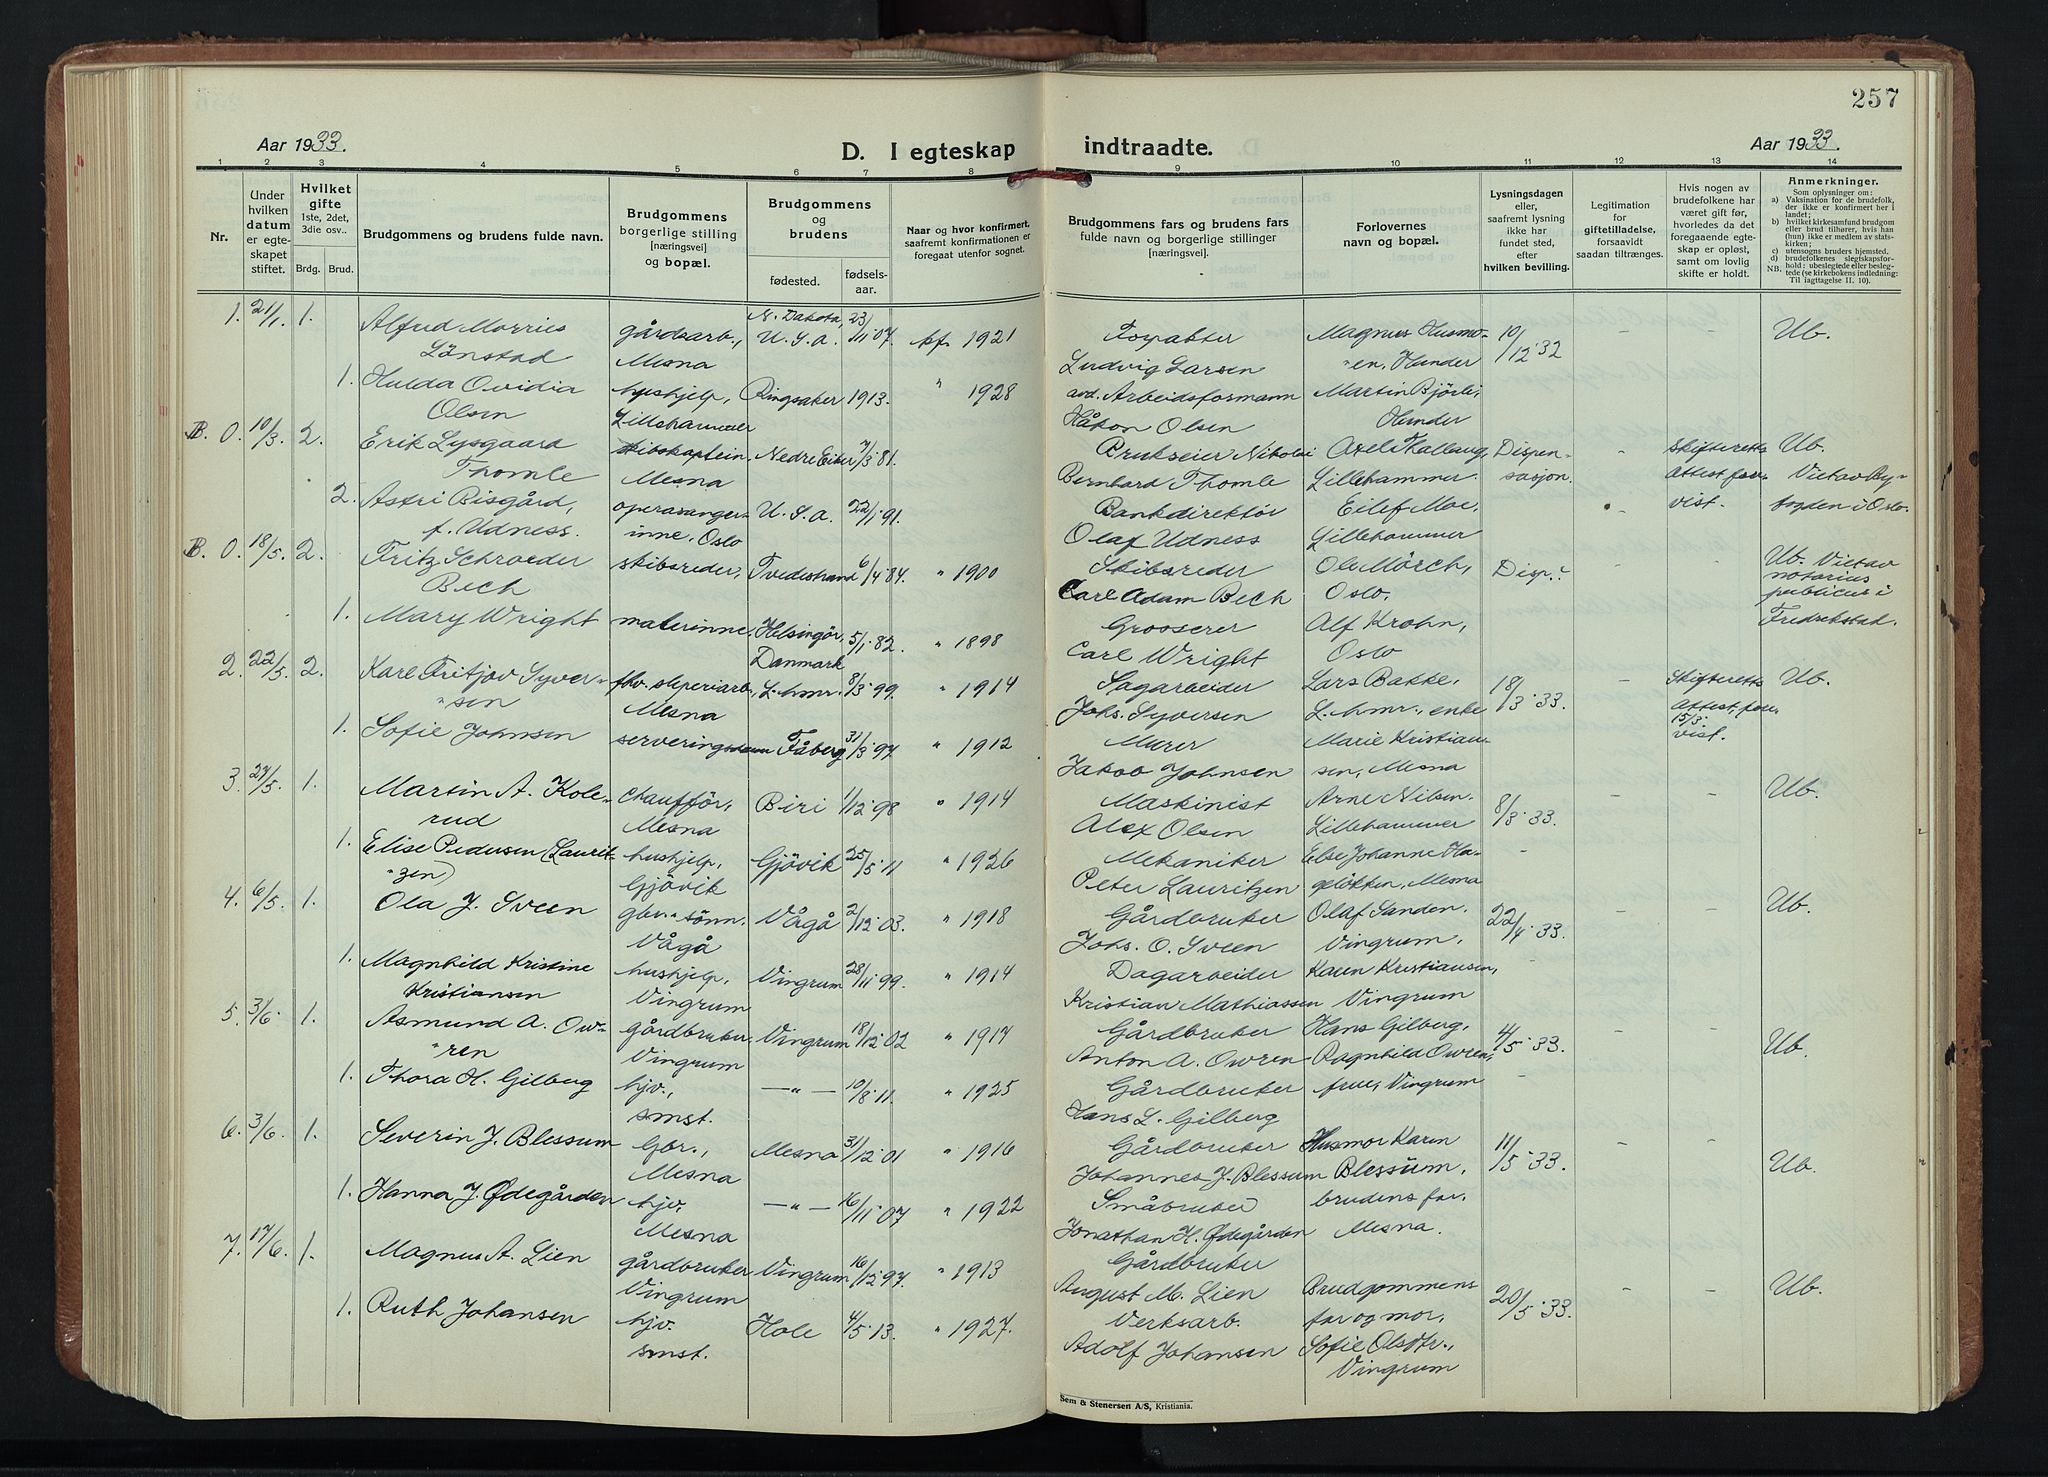 257
Aar 1933.
D. I egteskap indtraadte.
Aar 1933.
1 2 3 4 5 6 7 8 9 10 11 12 13 14
Nr.
Under hvilken datum er egteskapet stiftet.
Hvilket gifte 1ste, 2det, 3die osv..
Brdg. Brud.
Brudgommens og brudens fulde navn.
Brudgommens borgerlige stilling [næringsvei] og bopæl.
Brudgommens og brudens
fødested. fødsels-aar.
Naar og hvor konfirmert, saafremt konfirmationen er foregaat utenfor sognet.
Brudgommens fars og brudens fars fulde navn og borgerlige stillinger [næringsvei].
Forlovernes navn og bopæl.
Lysningsdagen eller, saafremt lysning ikke har fundet sted, efter hvilken bevilling.
Legitimation for giftetilladelse, forsaavidt saadan tiltrænges.
Hvis nogen av brudefolkene har været gift før, hvorledes da det foregaaende egteskap er opløst, samt om lovlig skifte er holdt.
Anmerkninger.
Som oplysninger om:
a) Vaksination for de brudefolk, der ikke er konfirmert her i landet;
b) hvilket kirkesamfund brudgom eller brud tilhører, hvis han (hun) ikke er medlem av statskirken;
c) utensogns bruders hjemsted.
d) brudefolkenes slegtskapsforhold: ubeslegtede eller beslegtede (se kirkebokens indledning: Til iagttagelse II. 10).
NB.
1. 21/1. 1. Alfred Morrius Lönstad gårdsarb., Mesna N. Dakota, U.S.a. 23/11 07. kf. 1921 Forpakter Ludvig Larsen Magnus Husmoen, Hunder 10/12 32 - - Ub.
1. Hulda Ovidia Olsen hushjelp, Lillehammer Ringsaker 1913. " 1928 avd. Arbeidsformann Håkon Olsen Martin Bjørli, Hunder
B. 0. 10/3. 2. Erik Lysgaard Thomle skibskaptein, Mesna Nedre Eiker 7/3 81. Brukseier Nikolai Bernhard Thomle Axel Kallaug, Lillehammer. Dispensasjon. - Skifteretts attest forevist. Ub. Viet av Bytogden i Oslo.
2. Astri Bisgård, f. Udness. operasangerinne, Oslo U.S.a. 22/1 91. Bankdirektör Olaf Udness Eilef Moe, Lillehammer
B. 0. 18/5. 2. Fritz Schroeder Bech skibsreder, Tvedestrand 6/4 84. " 1900 Skibsreder Carl Adam Bech Ole Mörch, Oslo. Disp.: - - Ub. Viet av notarius publicus i Fredrikstad.
1. Mary Wright malerinne. Helsingör, Danmark 5/1 82. " 1898 Grosserer Carl Wright Alf Krohn, Oslo
2. 22/5. 2. Karl Fritjov Syversen fhv. sliperiarb., Mesna L.hmr. 8/3 99. " 1914 Sagarbeider Johs. Syversen Lars Bakke, L.hmr., enke 18/3 33. - Skifteretts attest, fore 15/3. vist. Ub.
1. Sofie Johnsen serveringsdame Fåberg 31/3 97 " 1912 Murer Jakob Johnsen Marie Kristiansen, Mesna
3. 27/5. 1. Martin A. Kolerud chaufför, Mesna Biri 1/12 98 " 1914 Maskinist Alex Olsen Arne Nilsen. Lillehammer 8/3 33. - - Ub.
1. Elise Pedersen (Lauritzen) hushjelp, Gjövik Gjövik 25/5 11 " 1926 Mekaniker Peter Lauritzen Else Johanne Hageløkken, Mesna -
4. 6/5. 1. Ola J. Sveen gbr. sönn. Vågå Vågå 2/12 03. " 1918 Gårdbruker Johs. O. Sveen Olaf Sanden. Vingrum. 22/4 33. - - Ub.
1. Magnhild Kristine Kristiansen hushjelp, Vingrum Vingrum 28/11 99. " 1914 Dagarbeider Kristian Mathiassen Karen Kristiansen, Vingrum -
5. 3/6. 1. Asmund A. Owren gårdbruker, Vingrum Vingrum 18/12 02 " 1917 Gårdbruker Anton A. Owren Hans Gilberg, Ragnhild Owren, 4/5 33. - - Ub.
1. Thora H. Gilberg hjv., smst. —"— 10/8 11. " 1925 Gårdbruker Hans L. Gilberg frue, Vingrum -
6. 3/6. 1. Severin J. Blessum Gbr., Mesna Mesna 31/12 01 " 1916 Gårdbruker Johannes J. Blessum Husmor Karen Blessum, 11/5 33. - - Ub.
1. Hanna J. Ødegården hjv. Mesna —"— 16/11 07 " 1922 Småbruker Jonathan H. Ødegården brudens far. Mesna.
7. 17/6. 1. Magnus A. Lien gårdbruker Vingrum Vingrum 16/12 97. " 1913 Gårdbruker August M. Lien Brudgommens far og mor, 20/5 33. - - Ub.
1. Ruth Johansen hjv. smst. Hole 4/5 13. " 1927. Verksarb. Adolf Johansen Sofie Olsdtr., Vingrum
Sem & Stenersen A/S, Kristiania.